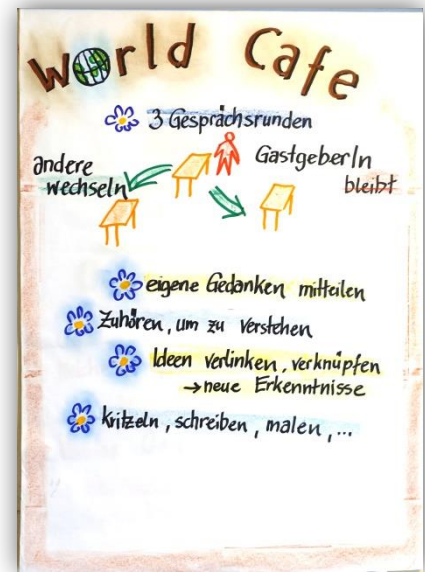 World Cafe
3 Gesprächsrunden
andere
wechseln
GastgeberIn
bleibt
eigene Gedanken mitteilen
Zuhören, um zu verstehen
Ideen verlinken, verknüpfen
→ neue Erkenntnisse
kritzeln, schreiben, malen, ...